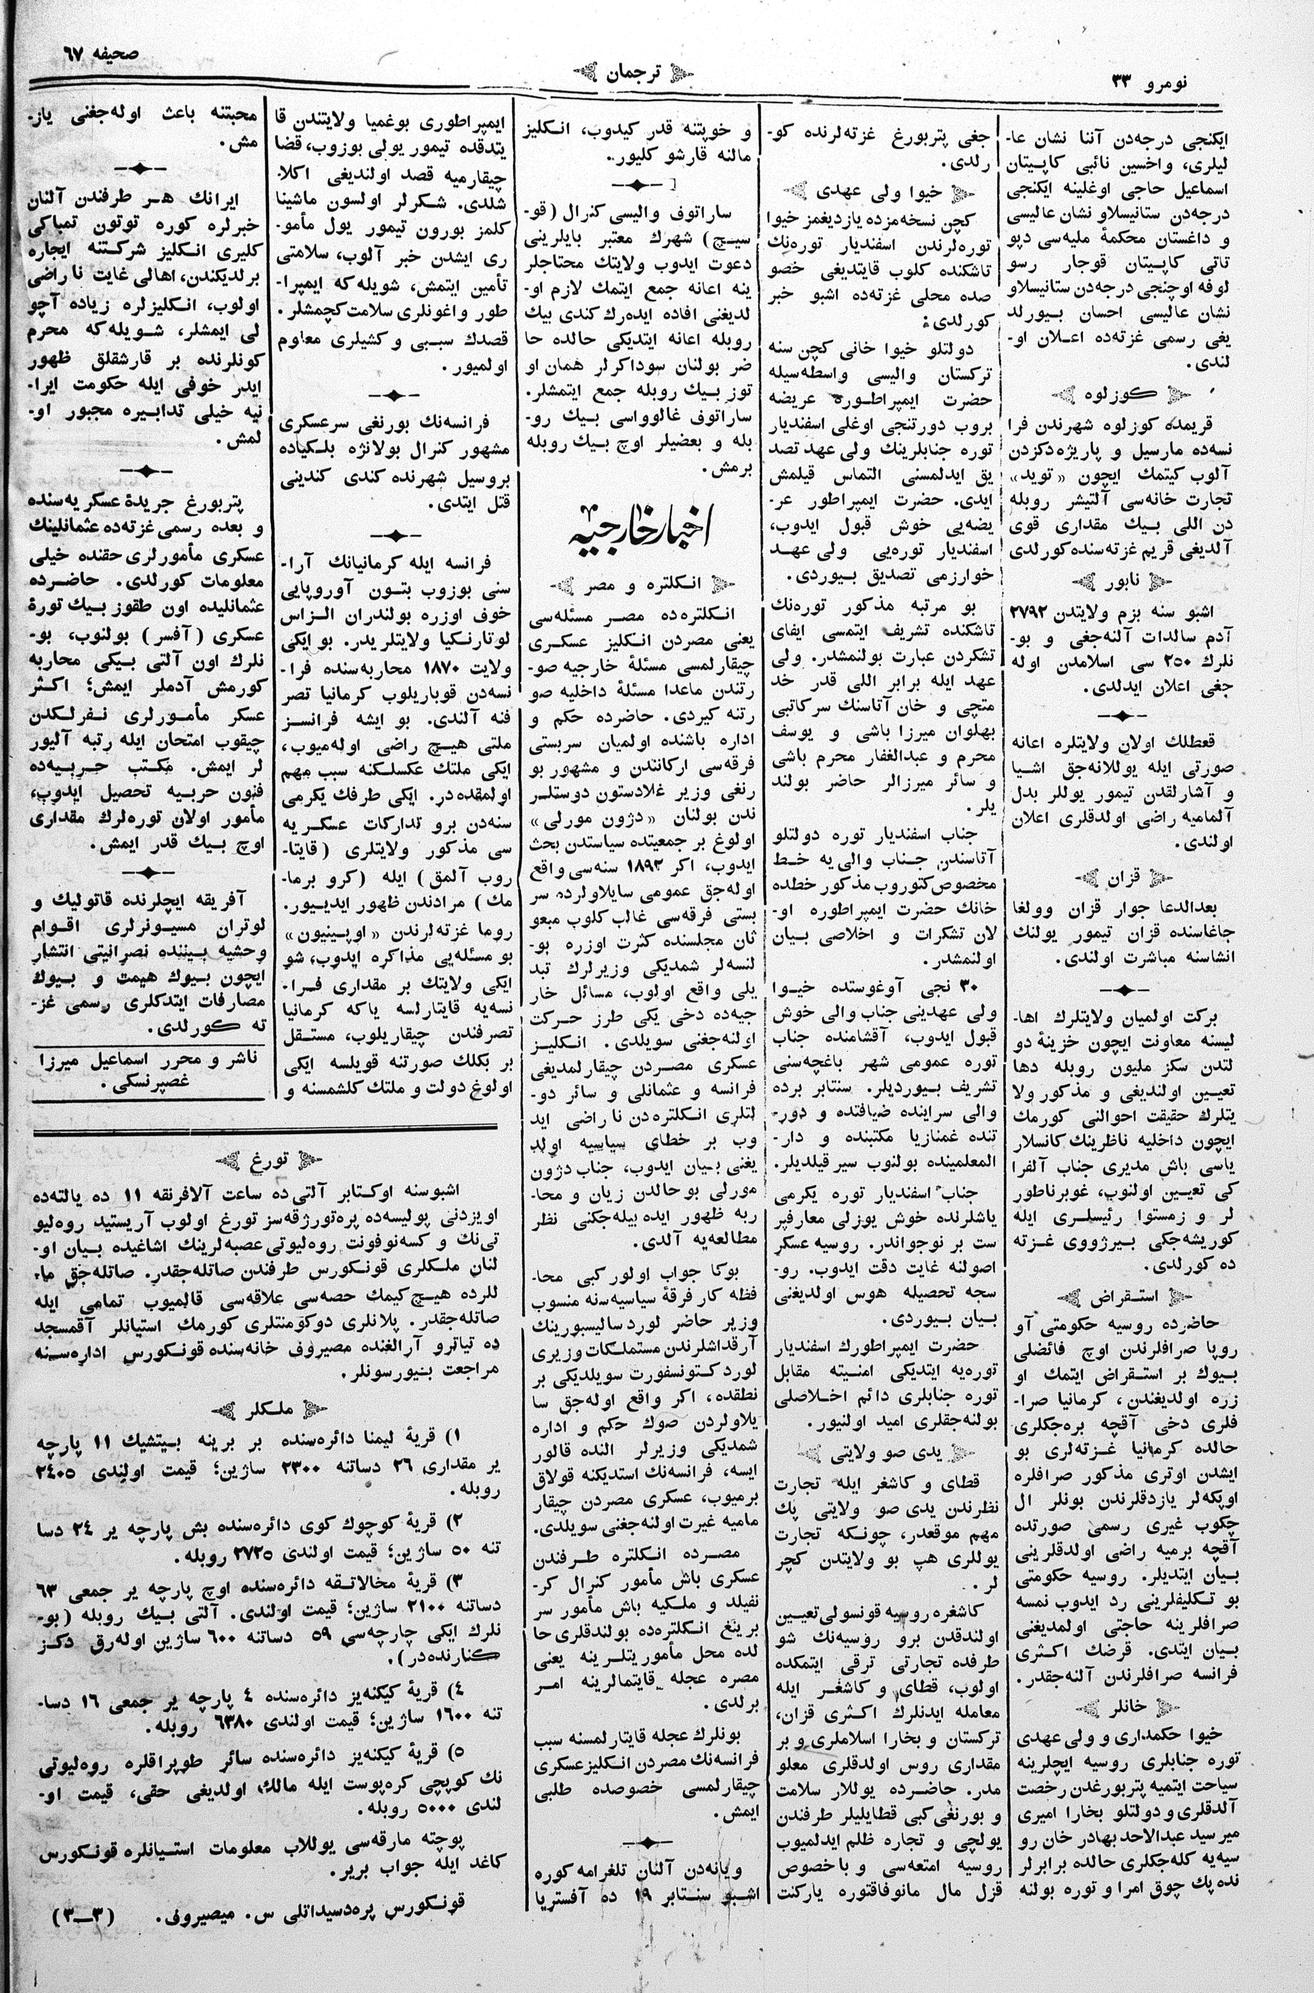 نومرو ٣٣
ترجمان
صحيفه ٦٧
ايكنجى درجه‌دن آننا نشان عا-
ليلرى، واخسين نائبى كاپيتان
اسماعيل حاجى اوغلينه ايكنجى
درجه‌دن ستانيسلاو نشان عاليسى
و داغستان محكمهٔ مليه‌سى دپو
تاتى كاپيتان قوجار رسو
لوفه اوچنجى درجه‌دن ستانيسلاو
نشان عاليسى احسان بيورلد
يغى رسمى غزته‌ده اعلان او-
لندى.
كوزلوه
قريمده كوزلوه شهرندن فرا
نسه‌ده مارسيل و پاريژه دكزدن
آلوب كيتمك ايچون «تويد»
تجارت خانه‌سى آلتيشر روبله
دن اللى بيك مقدارى قوى
آلديغى قريم غزته‌سنده كورلدى
نابور
اشبو سنه بزم ولايتدن ٢٧٩٢
آدم سالدات آلنه‌جغى و بو-
نلرك ٢٥٠ سى اسلامدن اوله
جغى اعلان ايدلدى.
قعطلك اولان ولايتلره اعانه
صورتى ايله يوللانه‌جق اشيا
و آشارلقدن تيمور يوللر بدل
آلماميه راضى اولدقلرى اعلان
اولندى.
قزان
بعدالدعا جوار قزان وولغا
جاغاسنده قزان تيمور يولنك
انشاسنه مباشرت اولندى.
بركت اولميان ولايتلرك اها-
ليسنه معاونت ايچون خزينهٔ دو
لتدن سكز مليون روبله دها
تعيين اولنديغى و مذكور ولا
يتلرك حقيقت احوالنى كورمك
ايچون داخليه ناظرينك كانسلار
ياسى باش مديرى جناب آلفرا
كى تعيين اولنوب، غوبرناطور
لر و زمستوا رئيسلرى ايله
كوريشه‌جكى بيرژووى غزته
ده كورلدى.
استقراض
حاضرده روسيه حكومتى آو
روپا صرافلرندن اوچ فائضلى
بيوك بر استقراض ايتمك او
زره اولديغندن، كرمانيا صرا-
فلرى دخى آقچه بره‌جكلرى
حالده كرمانيا غزته‌لرى بو
ايشدن اوترى مذكور صرافلره
اوپكه‌لر يازدقلرندن بونلر ال
چكوب غيرى رسمى صورتده
آقچه برميه راضى اولدقلرينى
بيان ايتديلر. روسيه حكومتى
بو تكليفلرينى رد ايدوب نمسه
صرافلرينه حاجتى اولمديغنى
بيان ايتدى. قرضك اكثرى
فرانسه صرافلرندن آلنه‌جقدر.
خانلر
خيوا حكمدارى و ولى عهدى
توره جنابلرى روسيه ايچلرينه
سياحت ايتميه پتربورغدن رخصت
آلدقلرى و دولتلو بخارا اميرى
ميرسيد عبدالاحد بهادر خان رو
سيه‌يه كله‌جكلرى حالده برابرلر
نده پك چوق امرا و توره بولنه
جغى پتربورغ غزته‌لرنده كو-
رلدى.
خيوا ولى عهدى
كچن نسخه‌مزده يازديغمز خيوا
توره‌لرندن اسفنديار توره‌نك
تاشكنده كلوب قايتديغى خصو
صده محلى غزته‌ده اشبو خبر
كورلدى:
دولتلو خيوا خانى كچن سنه
تركستان واليسى واسطه‌سيله
حضرت ايمپراطوره عريضه
بروب دورتنجى اوغلى اسفنديار
توره جنابلرينك ولى عهد تصد
يق ايدلمسنى التماس قيلمش
ايدى. حضرت ايمپراطور عر-
يضه‌يى خوش قبول ايدوب،
اسفنديار توره‌يى ولى عهد
خوارزمى تصديق بيوردى.
بو مرتبه مذكور توره‌نك
تاشكنده تشريف ايتمسى ايفاى
تشكردن عبارت بولنمشدر. ولى
عهد ايله برابر اللى قدر خد
متچى و خان آتاسنك سركاتبى
بهلوان ميرزا باشى و يوسف
محرم و عبدالغفار محرم باشى
و سائر ميرزالر حاضر بولند
يلر.
جناب اسفنديار توره دولتلو
آتاسندن جناب والى يه خط
مخصوص كتوروب مذكور خطده
خانك حضرت ايمپراطوره او-
لان تشكرات و اخلاصى بيان
اولنمشدر.
٣٠ نجى آوغوستده خيوا
ولى عهدينى جناب والى خوش
قبول ايدوب، آقشامنده جناب
توره عمومى شهر باغچه‌سنى
تشريف بيورديلر. سنتابر برده
والى سراينده ضيافتده و دور-
تنده غمنازيا مكتبنده و دار-
المعلمينده بولنوب سير قيلديلر.
جناب اسفنديار توره يكرمى
ياشلرنده خوش يوزلى معارفپر
ست بر نوجواندر. روسيه عسكر
اصولنه غايت دقت ايدوب. رو-
سجه تحصيله هوس اولديغنى
بيان بيوردى.
حضرت ايمپراطورك اسفنديار
توره‌يه ايتديكى امنيته مقابل
توره جنابلرى دائم اخلاصلى
بولنه‌جقلرى اميد اولنيور.
يدى صو ولايتى
قطاى و كاشغر ايله تجارت
نظرندن يدى صو ولايتى پك
مهم موقعدر، چونكه تجارت
يوللرى هپ بو ولايتدن كچر
لر.
كاشغره روسيه قونسولى تعيين
اولندقدن برو روسيه‌نك شو
طرفده تجارتى ترقى ايتمكده
اولوب، قطاى و كاشغر ايله
معامله ايدنلرك اكثرى قزان،
تركستان و بخارا اسلاملرى و بر
مقدارى روس اولدقلرى معلو
مدر. حاضرده يوللار سلامت
و بورنغى كبى قطايليلر طرفندن
يولچى و تجاره ظلم ايدلميوب
روسيه امتعه‌سى و باخصوص
قزل مال مانوفاقتوره ياركنت
و خوپتنه قدر كيدوب، انكليز
مالنه قارشو كليور.
ساراتوف واليسى كنرال (قو-
سيچ) شهرك معتبر بايلرينى
دعوت ايدوب ولايتك محتاجلر
ينه اعانه جمع ايتمك لازم او-
لديغنى افاده ايده‌رك كندى بيك
روبله اعانه ايتديكى حالده حا
ضر بولنان سوداكرلر همان او
توز بيك روبله جمع ايتمشلر.
ساراتوف غالوواسى بيك رو-
بله و بعضيلر اوچ بيك روبله
برمش.
اخبار خارجيه
انكلتره و مصر
انكلتره‌ده مصر مسئله‌سى
يعنى مصردن انكليز عسكرى
چيقارلمسى مسئلهٔ خارجيه صو-
رتندن ماعدا مسئلهٔ داخليه صو
رتنه كيردى. حاضرده حكم و
اداره باشنده اولميان سربستى
فرقه‌سى اركانندن و مشهور بو
رنغى وزير غلادستون دوستلر-
ندن بولنان «دژون مورلى»
اولوغ بر جمعيتده سياستدن بحث
ايدوب، اكر ١٨٩٢ سنه‌سى واقع
اوله‌جق عمومى سايلاولرده سر
بستى فرقه‌سى غالب كلوب مبعو
ثان مجلسنده كثرت اوزره بو-
لنسه‌لر شمديكى وزيرلرك تبد
يلى واقع اولوب، مسائل خار
جيه‌ده دخى يكى طرز حركت
اوله‌جغنى سويلدى. انكليز
عسكرى مصردن چيقارلمديغى
فرانسه و عثمانلى و سائر دو-
لتلرى انكلتره‌دن ناراضى ايد
وب بر خطاى سياسيه اولد
يغنى بيان ايدوب، جناب دژون
مورلى بو حالدن زيان و محا-
ربه ظهور ايده بيله‌جكنى نظر
مطالعه‌يه آلدى.
بوكا جواب اولور كبى محا-
فظه كار فرقهٔ سياسيه‌سنه منسوب
وزير حاضر لورد ساليسبورينك
آرقداشلرندن مستملكات وزيرى
لورد كنوتسفورت سويلديكى بر
نطقده، اكر واقع اوله‌جق سا
يلاولردن صوك حكم و اداره
شمديكى وزيرلر النده قالور
ايسه، فرانسه‌نك استديكنه قولاق
برميوب، عسكرى مصردن چيقار
ماميه غيرت اولنه‌جغنى سويلدى.
مصرده انكلتره طرفندن
عسكرى باش مأمور كنرال كر-
نفيلد و ملكيه باش مأمور سر
برينغ انكلتره‌ده بولندقلرى حا
لده محل مأموريتلرينه يعنى
مصره عجله قايتمالرينه امر
برلدى.
بونلرك عجله قايتارلمسنه سبب
فرانسه‌نك مصردن انكليز عسكرى
چيقارلمسى خصوصده طلبى
ايمش.
ويانه‌دن آلنان تلغرامه كوره
اشبو سنتابر ١٩ ده آفستريا
ايمپراطورى بوغميا ولايتندن قا
يتدقده تيمور يولى بوزوب، قضا
چيقارميه قصد اولنديغى اكلا
شلدى. شكرلر اولسون ماشينا
كلمز بورون تيمور يول مأمو-
رى ايشدن خبر آلوب، سلامتى
تأمين ايتمش، شويله‌كه ايمپرا-
طور واغونلرى سلامت كچمشلر.
قصدك سببى و كشيلرى معلوم
اولميور.
فرانسه‌نك بورنغى سرعسكرى
مشهور كنرال بولانژه بلكياده
بروسيل شهرنده كندى كندينى
قتل ايتدى.
فرانسه ايله كرمانيانك آرا-
سنى بوزوب بتون آوروپايى
خوف اوزره بولندران الزاس
لوتارنكيا ولايتلريدر. بو ايكى
ولايت ١٨٧٠ محاربه‌سنده فرا-
نسه‌دن قوپاريلوب كرمانيا تصر
فنه آلندى. بو ايشه فرانسز
ملتى هيچ راضى اوله‌ميوب،
ايكى ملتك عكسلكنه سبب مهم
اولمقده‌در. ايكى طرفك يكرمى
سنه‌دن برو تداركات عسكريه
سى مذكور ولايتلرى (قايتا-
روب آلمق) ايله (كرو برما-
مك) مرادندن ظهور ايديور.
روما غزته‌لرندن «اوپينيون»
بو مسئله‌يى مذاكره ايدوب، شو
ايكى ولايتك بر مقدارى فرا-
نسه‌يه قايتارلسه ياكه كرمانيا
تصرفندن چيقاريلوب، مستقل
بر بكلك صورتنه قويلسه ايكى
اولوغ دولت و ملتك كلشمسنه و
محبتنه باعث اوله‌جغنى ياز-
مش.
ايرانك هر طرفندن آلنان
خبرلره كوره توتون تمباكى
كليرى انكليز شركتنه ايجاره
برلديكندن، اهالى غايت ناراضى
اولوب، انكليزلره زياده آچو
لى ايمشلر، شويله‌كه محرم
كونلرنده بر قارشقلق ظهور
ايدر خوفى ايله حكومت ايرا-
نيه خيلى تدابيره مجبور او-
لمش.
پتربورغ جريدهٔ عسكريه‌سنده
و بعده رسمى غزته‌ده عثمانلينك
عسكرى مأمورلرى حقنده خيلى
معلومات كورلدى. حاضرده
عثمانليده اون طقوز بيك تورهٔ
عسكرى (آفسر) بولنوب، بو-
نلرك اون آلتى بيكى محاربه
كورمش آدملر ايمش؛ اكثر
عسكر مأمورلرى نفرلكدن
چيقوب امتحان ايله رتبه آليور
لر ايمش. مكتب حربيه‌ده
فنون حربيه تحصيل ايدوب،
مأمور اولان توره‌لرك مقدارى
اوچ بيك قدر ايمش.
آفريقه ايچلرنده قاتوليك و
لوتران مسيونرلرى اقوام
وحشيه بيننده نصرانيتى انتشار
ايچون بيوك همت و بيوك
مصارفات ايتدكلرى رسمى غز-
ته كورلدى.
ناشر و محرر اسماعيل ميرزا
غصپرنسكى.
تورغ
اشبو سنه اوكتابر آلتى‌ده ساعت آلافرنقه ١١ ده يالته‌ده
اويزدنى پوليسه‌ده پره‌تورژقه‌سز تورغ اولوب آريستيد روه‌ليو
تى‌نك و كسه‌نوفونت روه‌ليوتى عصبه‌لرينك اشاغيده بيان او-
لنان ملكلرى قونكورس طرفندن صاتله‌جقدر. صاتله‌جق ما-
للرده هيچ كيمك حصه‌سى علاقه‌سى قالميوب تمامى ايله
صاتله‌جقدر. پلانلرى دوكومنتلرى كورمك استيانلر آقمسجد
ده تياترو آرالغنده مصيروف خانه‌سنده قونكورس اداره‌سنه
مراجعت بنيورسونلر.
ملكلر
١) قريهٔ ليمنا دائره‌سنده بر برينه بيتشيك ١١ پارچه
ير مقدارى ٢٦ دساتنه ٢٣٠٠ ساژين؛ قيمت اولندى ٢٤٠٥
روبله.
٢) قريهٔ كوچوك كوى دائره‌سنده بش پارچه ير ٢٤ دسا
تنه ٥٠ ساژين؛ قيمت اولندى ٢٧٢٥ روبله.
٣) قريهٔ مخالاتقه دائره‌سنده اوچ پارچه ير جمعى ٦٣
دساتنه ٢١٠٠ ساژين؛ قيمت اولندى. آلتى بيك روبله (بو-
نلرك ايكى چارچه‌سى ٥٩ دساتنه ٦٠٠ ساژين اوله‌رق دكز
كنارنده‌در).
٤) قريهٔ كيكنه‌يز دائره‌سنده ٤ پارچه ير جمعى ١٦ دسا-
تنه ١٦٠٠ ساژين؛ قيمت اولندى ٦٣٨٠ روبله.
٥) قريهٔ كيكنه‌يز دائره‌سنده سائر طوپراقلره روه‌ليوتى
نك كوپچى كره‌پوست ايله مالك اولديغى حقى، قيمت او-
لندى ٥٠٠٠ روبله.
پوچته مارقه‌سى يوللاب معلومات استيانلره قونكورس
كاغد ايله جواب برير.
قونكورس پره‌دسيداتلى س. ميصيروفى. (٣—٣)